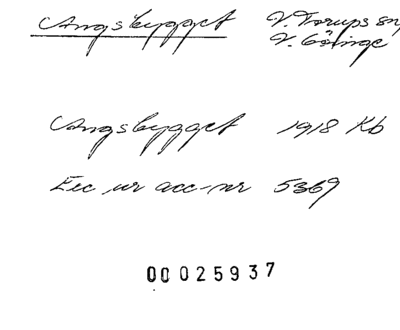 Ängsbygget V. Torups sn
V. Göinge
Ängsbygget 1918 Kb
Exc ur acc-nr 5369
00025937